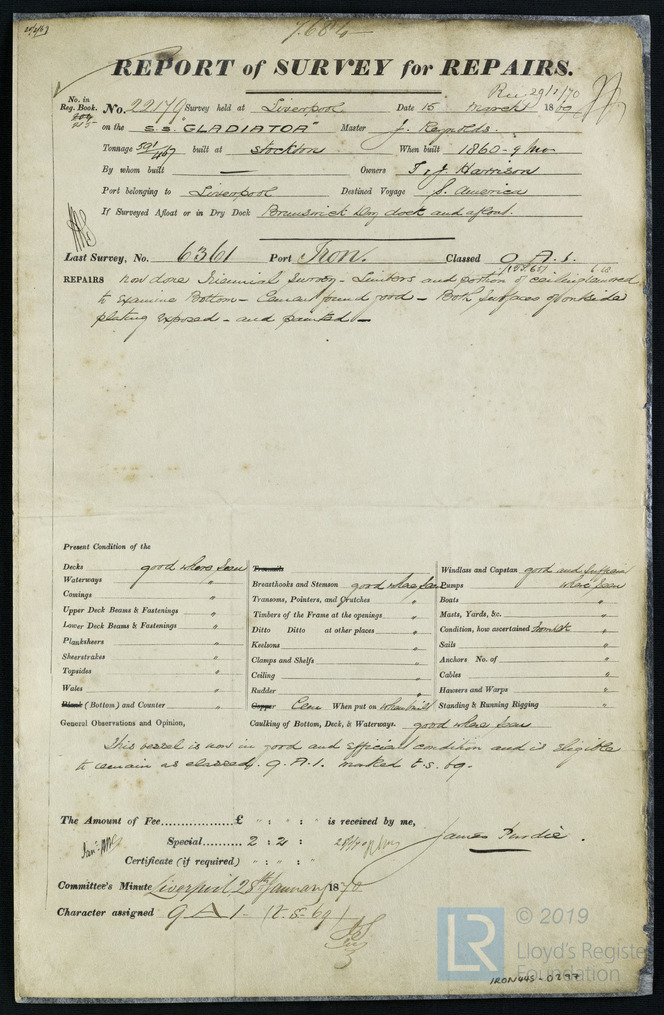 7684
REPORT of SURVEY for REPAIRS.
Rec 29/1/70
No. in Reg. Book. No. 22179 Survey held at Liverpool Date 15 March 1869
on the S.S. "GLADIATOR" Master J. Reynolds.
Tonnage 591/467 built at Stockton When built 1860-9 mo
By whom built — Owners T & J Harrison
Port belonging to Liverpool Destined Voyage S. America
If Surveyed Afloat or in Dry Dock Brunswick Dry dock and afloat.
Last Survey, No. 6361 Port Iron. Classed A.1.
REPAIRS now done Triennial Survey - Limbers and portion of ceiling removed
to examine Bottom - Cement found good - Both surfaces of outside
plating exposed - and painted -
Present Condition of the
Decks good where seen
Waterways "
Comings "
Upper Deck Beams & Fastenings "
Lower Deck Beams & Fastenings "
Planksheers "
Sheerstrakes "
Topsides "
Wales "
Plank (Bottom) and Counter "
Treenails
Breasthooks and Stemson good where seen
Transoms, Pointers, and Crutches "
Timbers of the Frame at the openings "
Ditto Ditto at other places "
Keelsons "
Clamps and Shelfs "
Ceiling "
Rudder "
Copper Cem When put on when built
Windlass and Capstan good and sufficient
Pumps where seen
Boats "
Masts, Yards, &c. "
Condition, how ascertained from deck "
Sails "
Anchors No. of "
Cables "
Hawsers and Warps "
Standing & Running Rigging "
General Observations and Opinion, Caulking of Bottom, Deck, & Waterways. good where seen
This vessel is now in good and efficient condition and is eligible
to remain as classed, 9.A.1. marked t.s. 69.
The Amount of Fee............... £ " : " : " is received by me,
Special......... 2 : 2 : James Purdie.
Certificate (if required) " : " : "
Committee's Minute Liverpool 28th January 1870
Character assigned 9 A 1 - (t.s. 69)
© 2019
LR
Lloyd's Register
Foundation
IRON445-0297